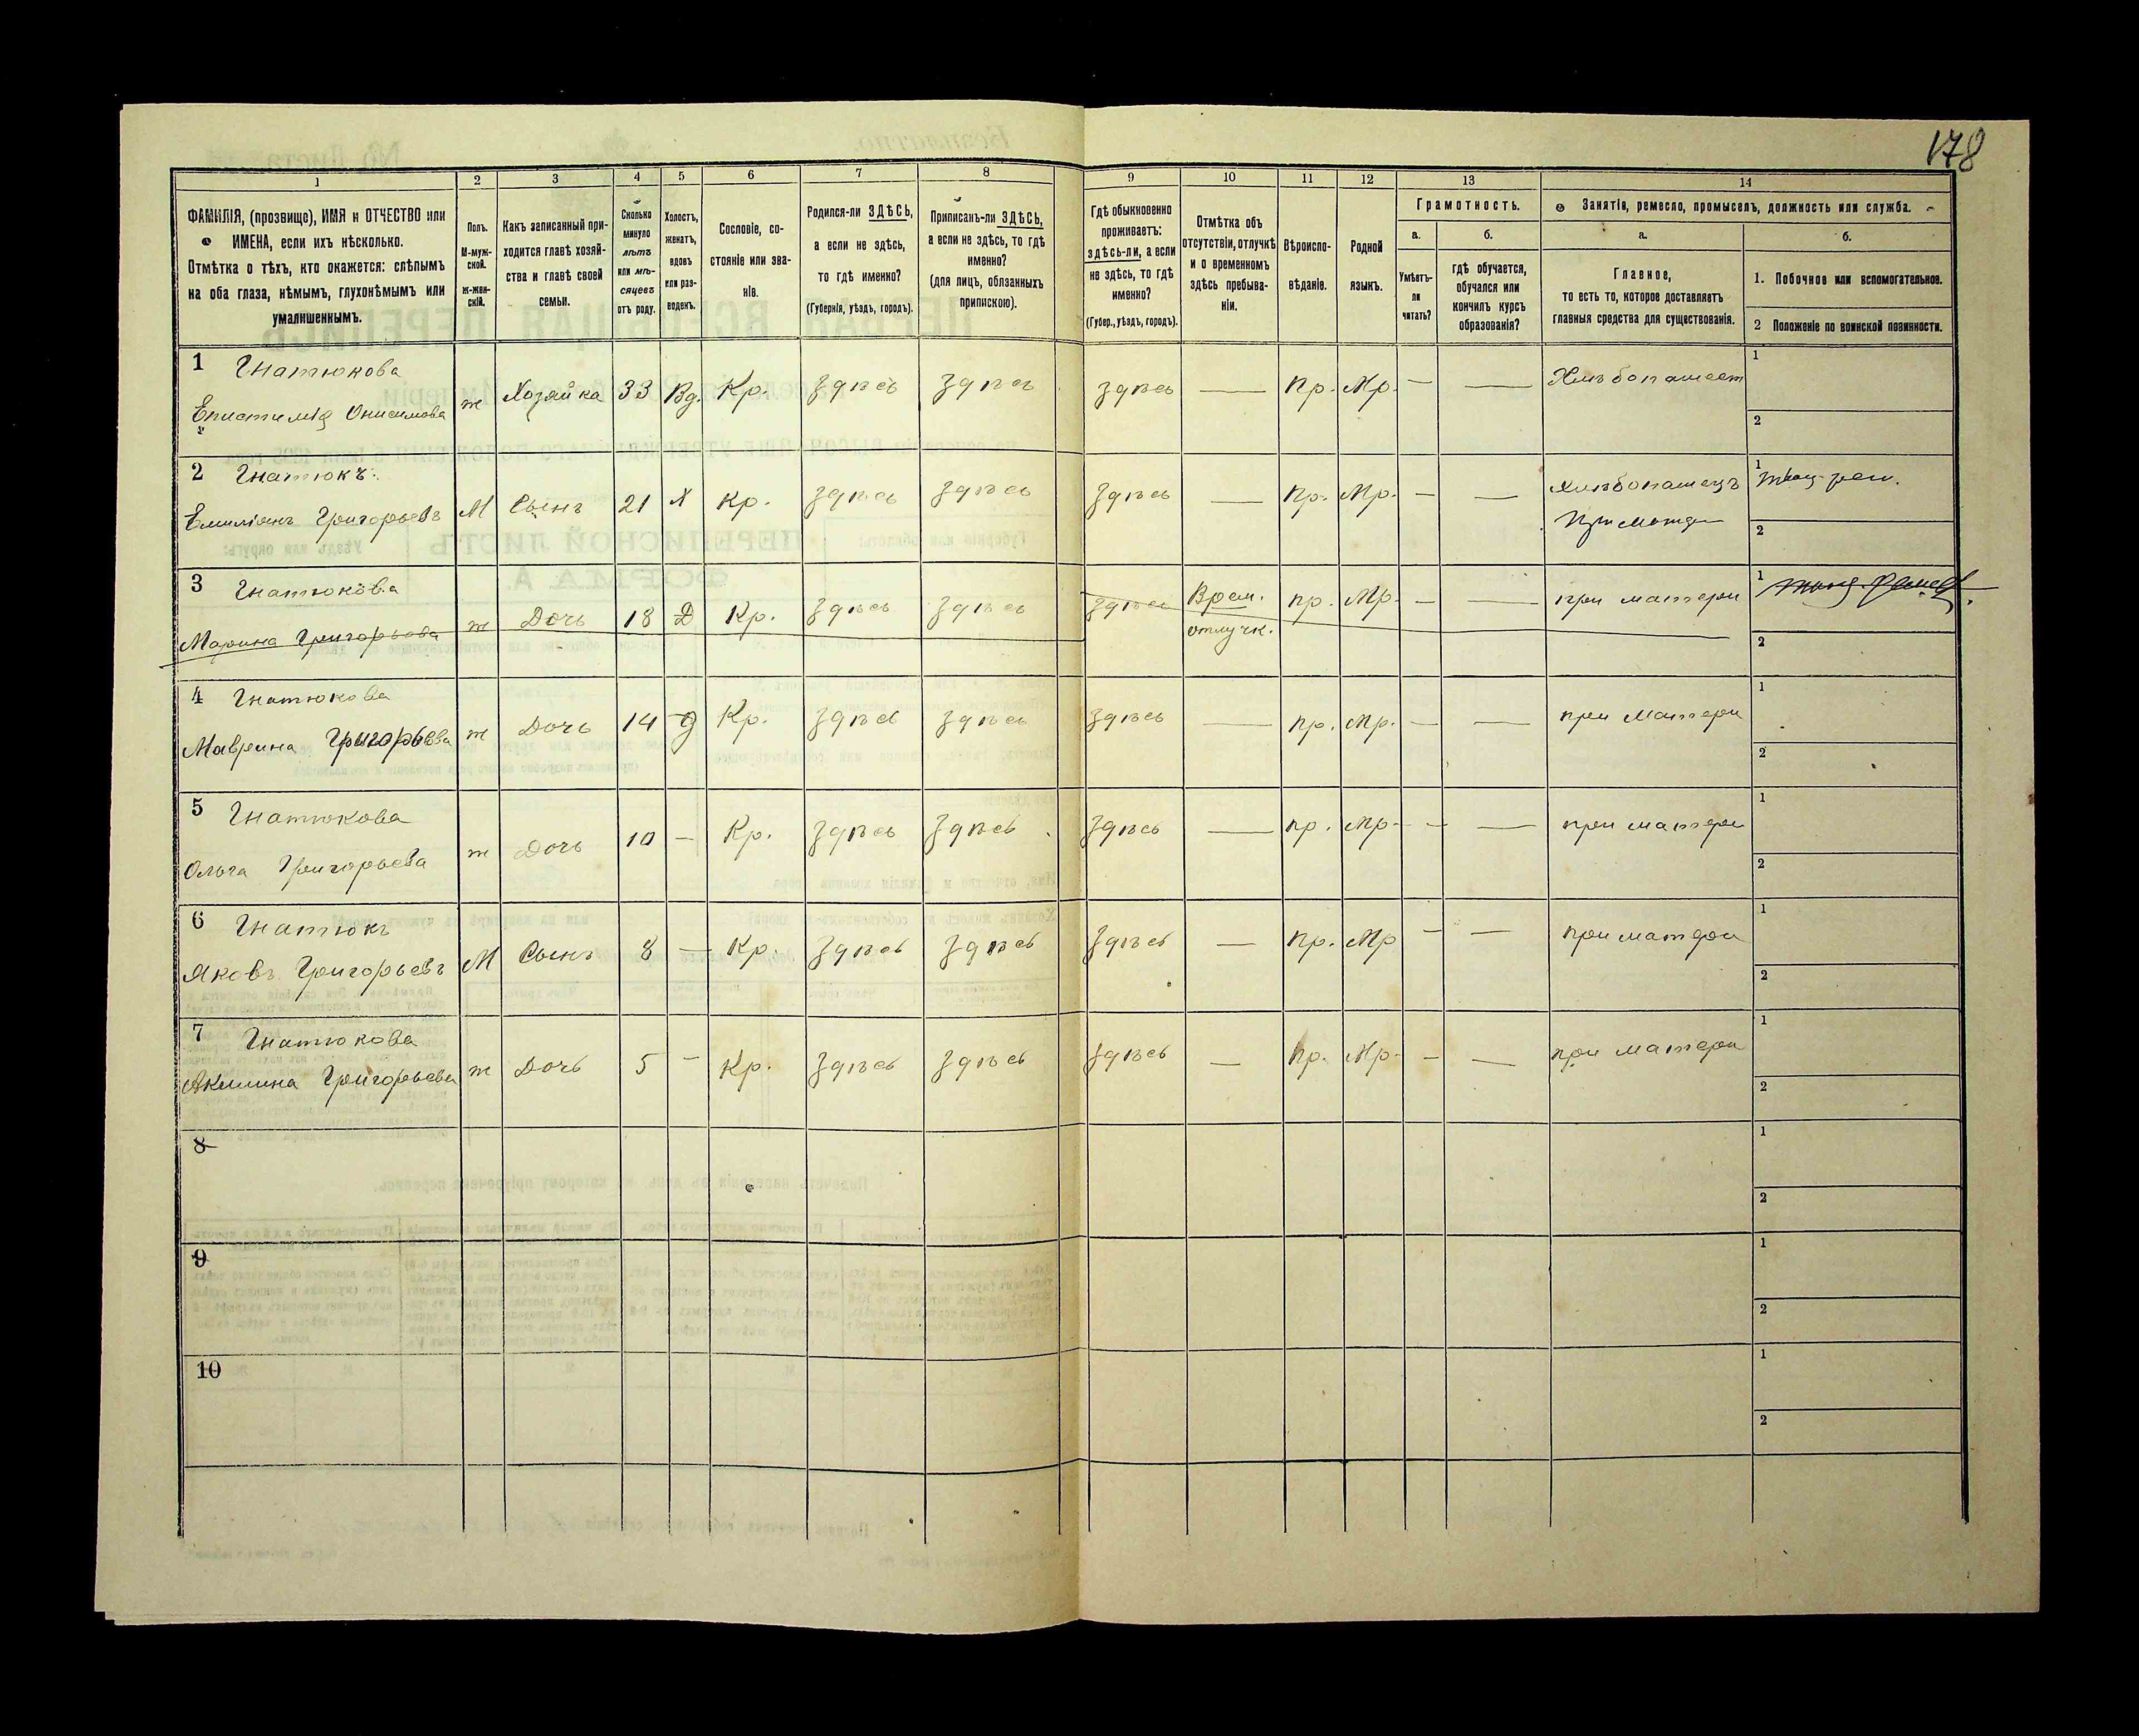 178
1 2 3 4 5 6 7 8 9 10 11 12 13 14
ФАМИЛІЯ, (прозвище), ИМЯ и ОТЧЕСТВО или
ИМЕНА, если ихъ нѣсколько.
Отмѣтка о тѣхъ, кто окажется: слѣпымъ
на оба глаза, нѣмымъ, глухонѣмымъ или
умалишеннымъ.
Полъ.
М-муж-
ской.
ж-жен-
скій.
Какъ записанный при-
ходится главѣ хозяй-
ства и главѣ своей
семьи.
Сколько
минуло
лѣтъ
или мѣ-
сяцевъ
отъ роду.
Холостъ,
женатъ,
вдовъ
или раз-
веденъ.
Сословіе, со-
стояніе или зва-
ніе.
Родился-ли ЗДѢСЬ,
а если не здѣсь,
то гдѣ именно?
(Губернія, уѣздъ, городъ).
Приписанъ-ли ЗДѢСЬ,
а если не здѣсь, то гдѣ
именно?
(для лицъ, обязанныхъ
припискою).
Гдѣ обыкновенно
проживаетъ:
здѣсь-ли, а если
не здѣсь, то гдѣ
именно?
(Губер., уѣздъ, городъ).
Отмѣтка объ
отсутствіи, отлучкѣ
и о временномъ
здѣсь пребыва-
ніи.
Вѣроиспо-
вѣданіе.
Родной
языкъ.
Грамотность.
а.
Умѣетъ-
ли
читать?
б.
гдѣ обучается,
обучался или
кончилъ курсъ
образованія?
Занятіе, ремесло, промыселъ, должность или служба.
а.
Главное,
то есть то, которое доставляетъ
главныя средства для существованія.
б.
1. Побочное или вспомогательное.
2 Положеніе по воинской повинности.
1 Гнатюкова
Епистимія Онисимова ж Хозяйка 33 Вд. Кр. Здѣсь Здѣсь Здѣсь — Пр. Мр. — — 1
2
2 Гнатюкъ
Емиліанъ Григорьевъ М Сынъ 21 Х Кр. Здѣсь Здѣсь Здѣсь — Пр. Мр. — — Хлѣбопашецъ 1
2
3 Гнатюкова
Марина Григорьева ж Дочь 18 Д Кр. Здѣсь Здѣсь Здѣсь Врем. отлучк. пр. Мр. — — при матери 1
2
4 Гнатюкова
Маврина Григорьева ж Дочь 14 Д Кр. Здѣсь Здѣсь Здѣсь — пр. Мр. — — при матери 1
2
5 Гнатюкова
Ольга Григорьева ж Дочь 10 — Кр. Здѣсь Здѣсь Здѣсь — пр. Мр. — — при матери 1
2
6 Гнатюкъ
Яковъ Григорьевъ М Сынъ 8 — Кр. Здѣсь Здѣсь Здѣсь — пр. Мр — — при матери 1
2
7 Гнатюкова
Акилина Григорьева ж Дочь 5 — Кр. Здѣсь Здѣсь Здѣсь — пр. Мр. — — при матери 1
2
8 1
2
9 1
2
10 1
2